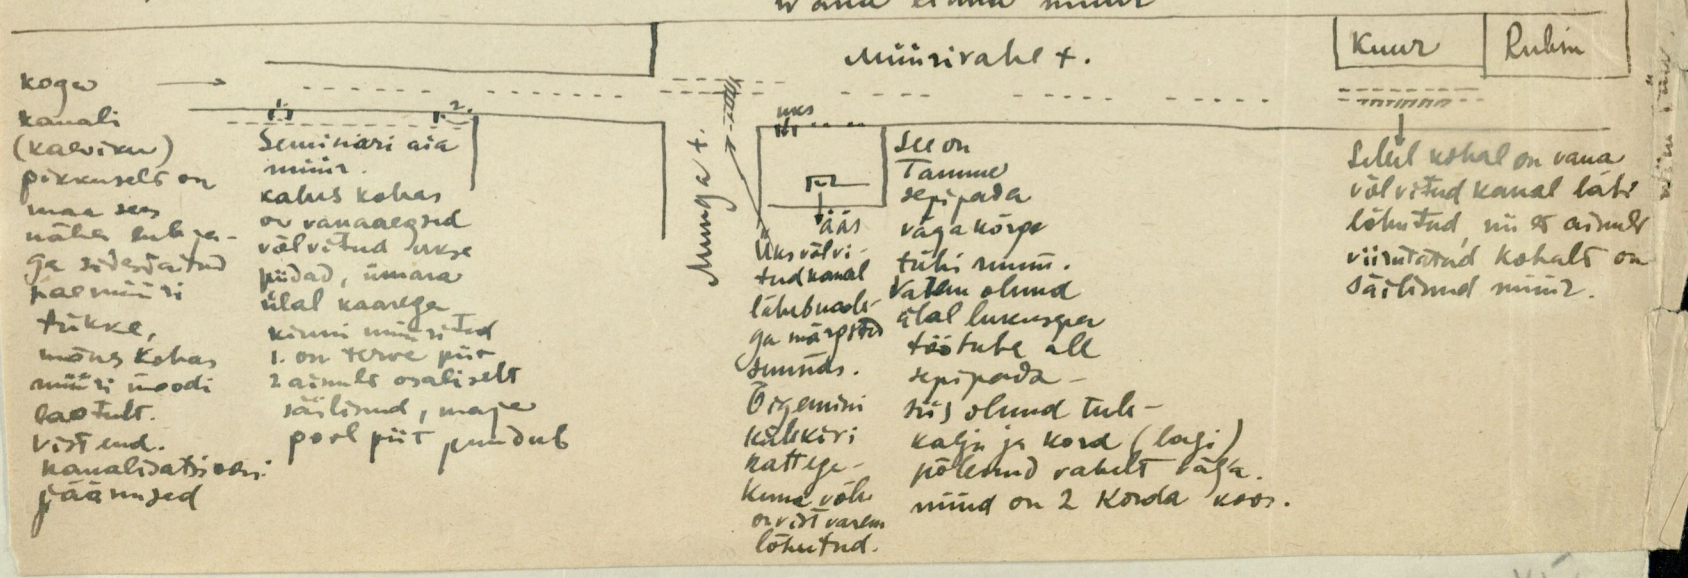 Vana linna müür
Müürivahe t.
Kuur
Ruhin
kogu
kanali
(kaeviku)
pikkuselt on
maa sees
näha
tükke,
mõnes kohas
müüri moodi
laotult.
Vist end.
kanalisatsiooni
jäänused
1.
2.
Seminari aia
müür.
kahes kohas
on vanaaegsed
võlvitud ukse
piidad, ümara
ülal kaarega
kinni müüritud
1. on terve piit
2 ainult osaliselt
säilinud, maja
pool piit puudub
Munga t.
uks
ääs
Üks võlvi-
tud kanal
läheb
ga märgitud
suunds.
Õigemini
kattega-
kuna võlv
on vist varem
lõhutud.
See on
Tamme
sepipada
väga kõrge
tühi ruum.
Varem olnud
ülal lukusepa
töötuba all
sepipada –
siis olnud tule-
kalju ja kord (lagi)
põlenud vahelt väga.
nüüd on 2 korda koos.
Sellel kohal on vana
võlvitud kanal läbi
lõhutud, nii et ainult
viirutatud kohalt on
säilinud müür.